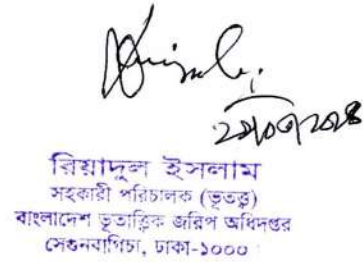 রিয়াদুল ইসলাম
সহকারী পরিচালক (ভূতত্ত্ব)
বাংলাদেশ ভূতাত্ত্বিক জরিপ অধিদপ্তর
সেগুনবাগিচা, ঢাকা-১০০০